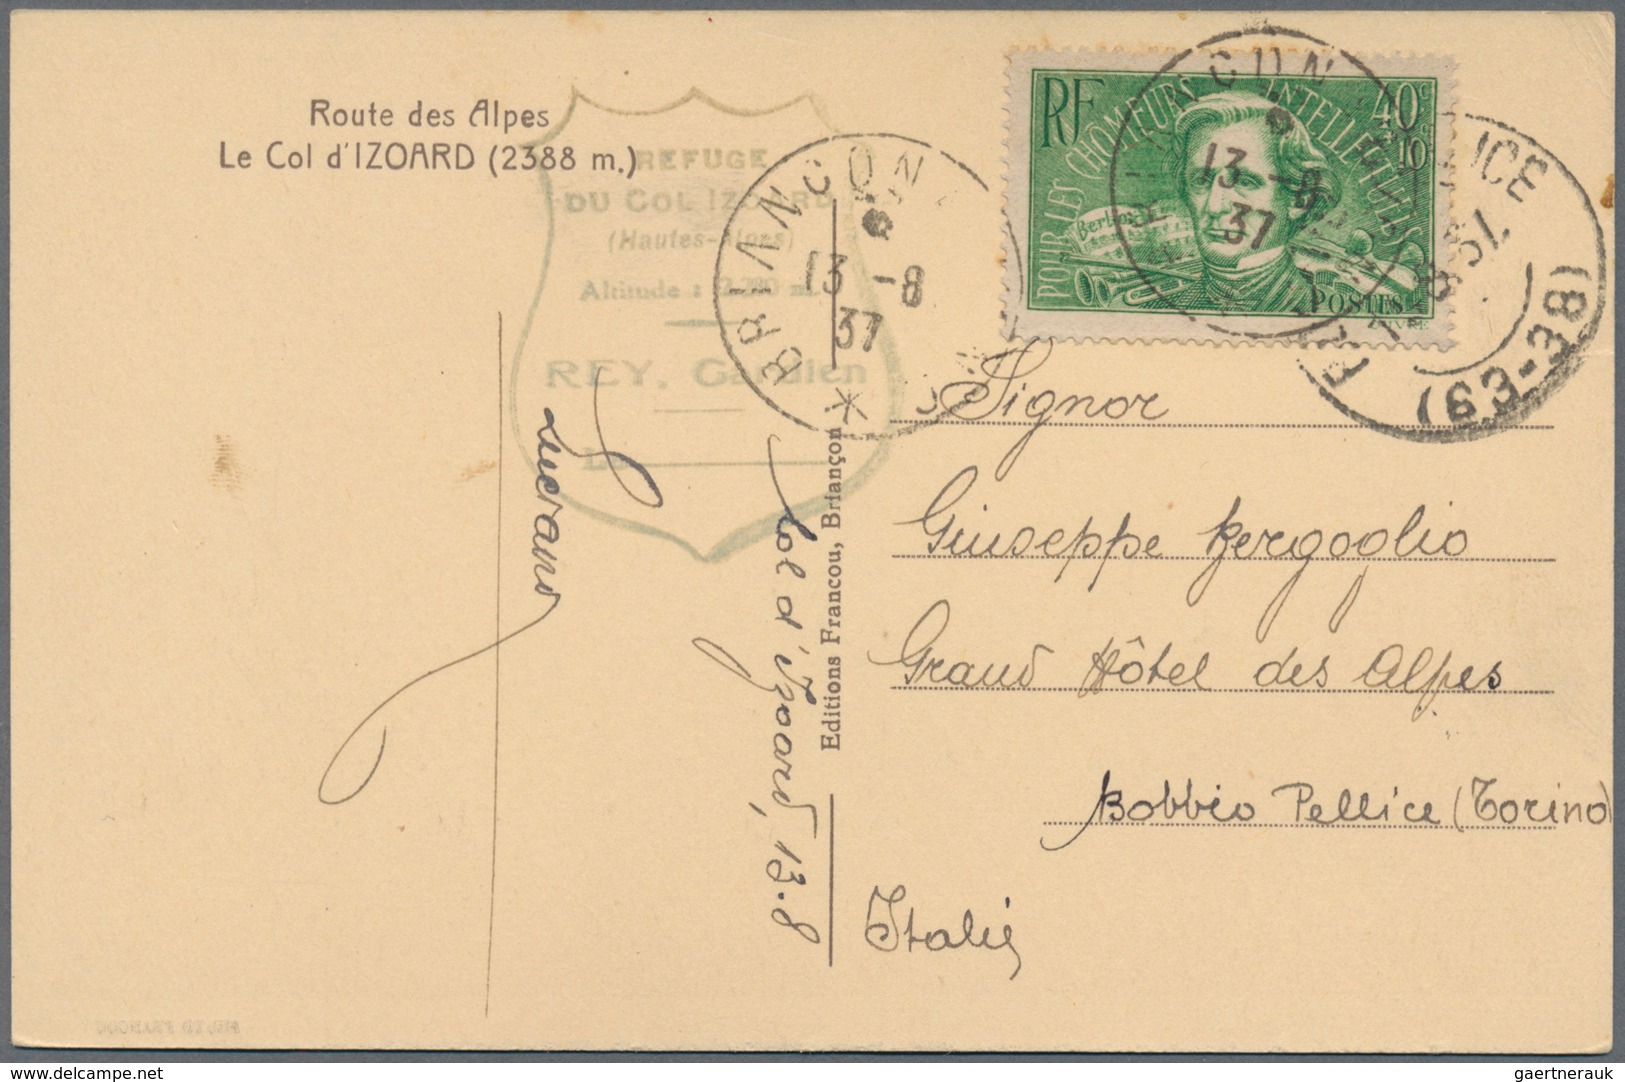 Route des Alpes
Le Col d'IZOARD (2388 m.)
REFUGE
DU COL IZOARD
(Hautes-Alpes)
Altitude : m.
REY, Gardien
Le
BRIANÇON
13 -8
37
RF
POUR LES CHÔMEURS INTELLECTUELS
40c
+10c
Berlioz
POSTES
BRIANÇON
13 -8
37
(63-38)
Editions Francou, Briançon
Col d'Izoard, 13.8
Luciano
Signor
Giuseppe Bergoglio
Grand Hôtel des Alpes
Bobbio Pellice (Torino)
Italie
gaertnerauk / picclick.com